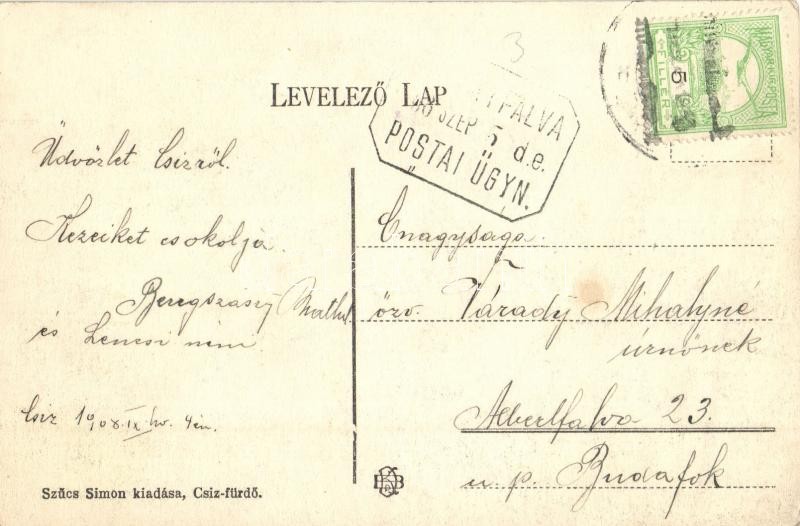 3
LEVELEZŐ LAP
FALVA
SZEP 5 d.e.
POSTAI ÜGYN.
MAGYAR KIR. POSTA
5
FILLÉR
Üdvözlet Csizről.
Kezeiket csokolja
Beregszászy
és Lencsi néni
Csiz 1908. IX. hó. 4én.
Szűcs Simon kiadása, Csiz-fürdő.
Őnagysága
özv. Várady Mihályné
úrnőnek
Albertfalva 23.
u. p. Budafok